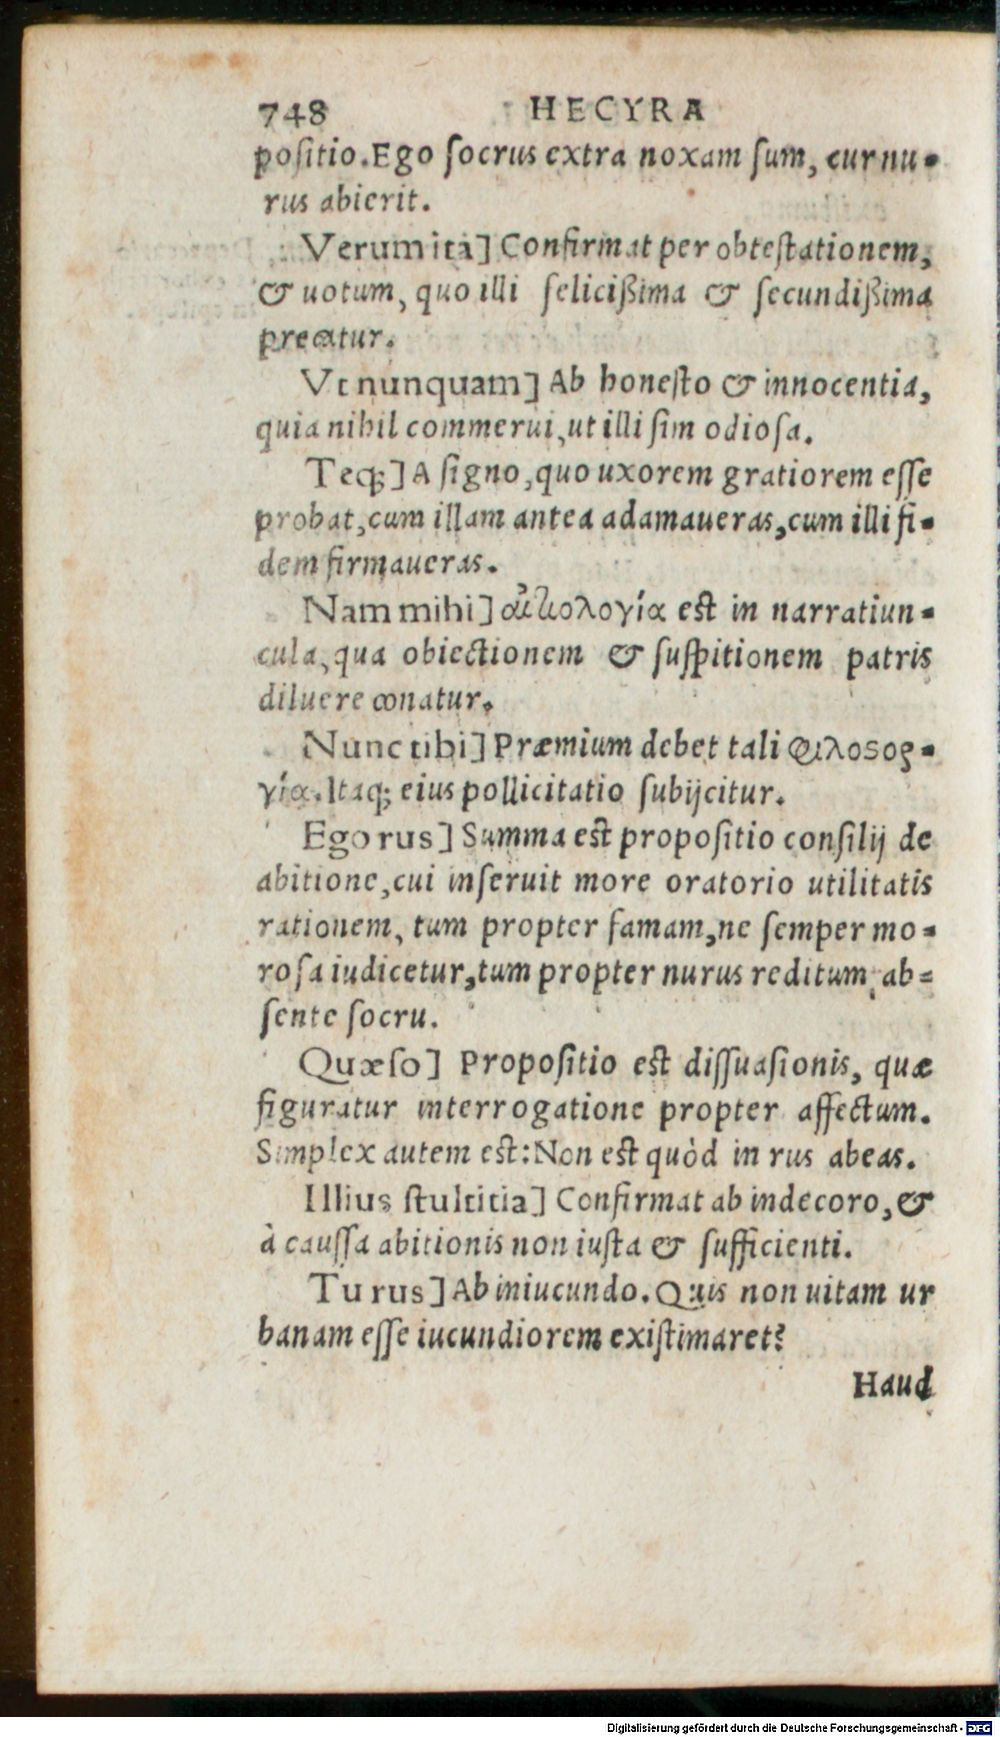 748 HECYRA
poſitio. Ego ſocrus extra noxam ſum, cur nu-
rus abierit.
Verum ita] Confirmat per obteſtationem,
& uotum, quo illi feliciſſima & ſecundiſſima
precatur.
Vt nunquam] Ab honeſto & innocentia,
quia nihil commerui, ut illi ſim odioſa.
Teq́;] A ſigno, quo uxorem gratiorem eſſe
probat, cum illam antea adamaueras, cum illi fi-
dem firmaueras.
Nam mihi] αἰτιολογία est in narratiun-
cula, qua obiectionem & ſuſpitionem patris
diluere conatur.
Nunc tibi] Præmium debet tali φιλοσορ-
γία. Itaq; eius pollicitatio ſubijcitur.
Ego rus] Summa est propoſitio conſilij de
abitione, cui inſeruit more oratorio utilitatis
rationem, tum propter famam, ne ſemper mo-
roſa iudicetur, tum propter nurus reditum, ab-
ſente ſocru.
Quæſo] Propoſitio est diſſuaſionis, quæ
figuratur interrogatione propter affectum.
Simplex autem est: Non est quòd in rus abeas.
Illius ſtultitia] Confirmat ab indecoro, &
à cauſſa abitionis non iuſta & ſufficienti.
Tu rus] Ab iniucundo. Quis non uitam ur
banam eſſe iucundiorem exiſtimaret?
Haud
Digitalisierung gefördert durch die Deutsche Forschungsgemeinschaft - DFG